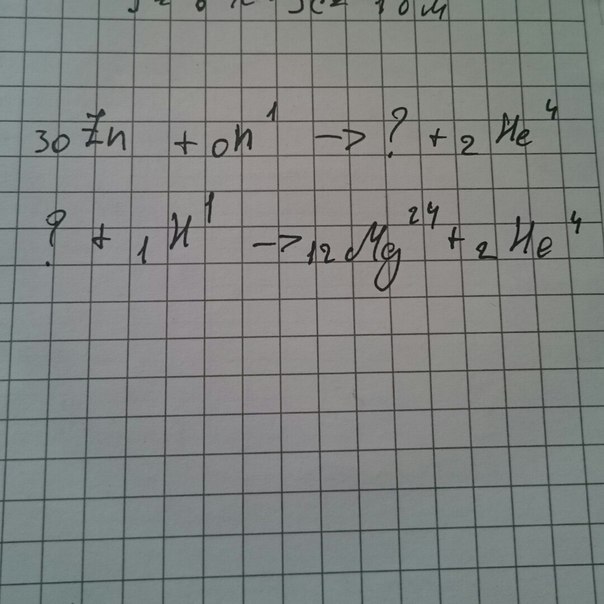 ₃₀Zn + ₀n¹ -> ? + ₂He⁴
? + ₁H¹ -> ₁₂Mg²⁴ + ₂He⁴